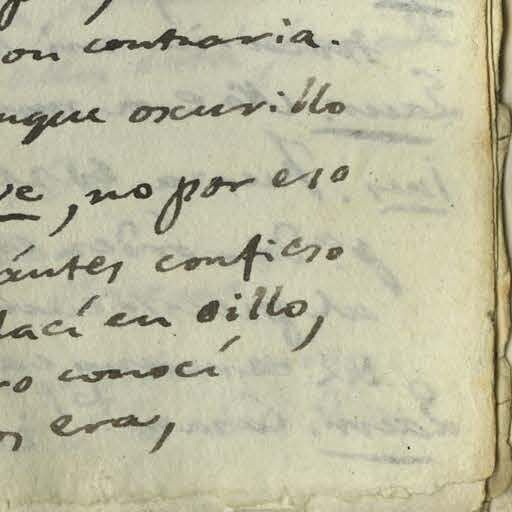 on contraria.
nque oscurillo
ve, no por eso
ántes confieso
lací en oillo,
ro conocí
era,